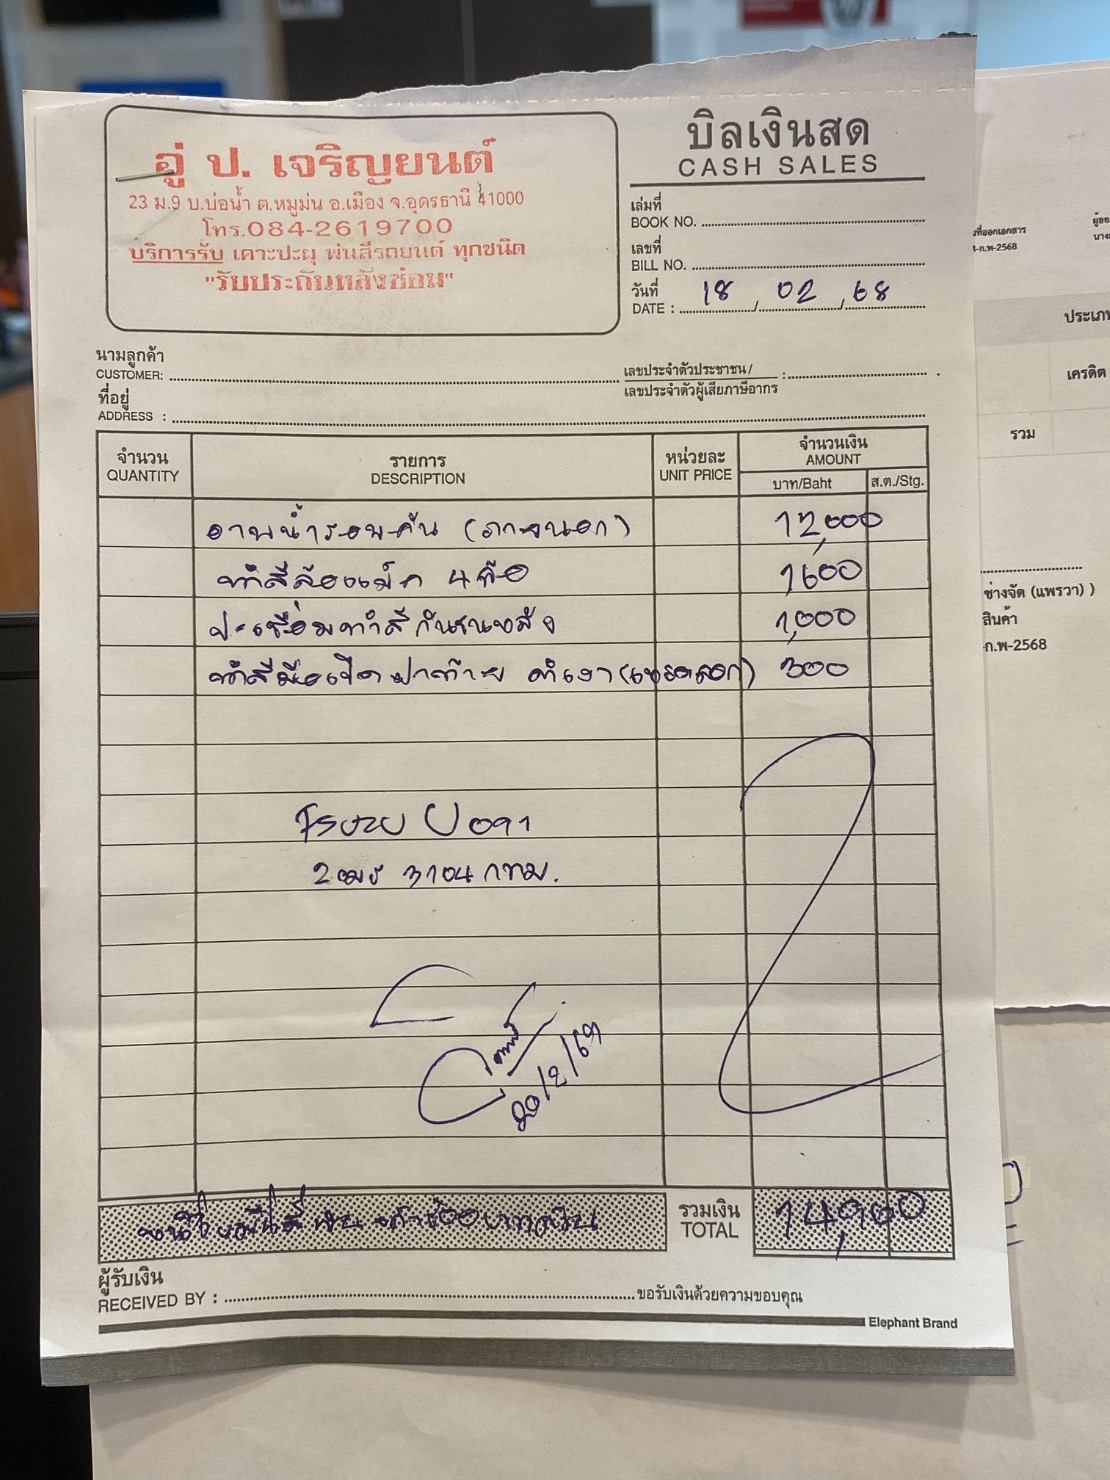 อู่ ป. เจริญยนต์
23 ม.9 บ.บ่อน้ำ ต.หมูม่น อ.เมือง จ.อุดรธานี 41000
โทร.084-2619700
บริการรับ เคาะปะผุ พ่นสีรถยนต์ ทุกชนิด
"รับประกันหลังซ่อม"
บิลเงินสด
CASH SALES
เล่มที่
BOOK NO.
เลขที่
BILL NO.
วันที่
DATE : 18 / 02 / 68
นามลูกค้า
CUSTOMER:
เลขประจำตัวประชาชน /
เลขประจำตัวผู้เสียภาษีอากร
ที่อยู่
ADDRESS :
จำนวน QUANTITY รายการ DESCRIPTION หน่วยละ UNIT PRICE จำนวนเงิน AMOUNT
บาท/Baht ส.ต./Stg.
อาบน้ำรอบคัน (ภายนอก) 12,000
ทำสีล้อแม็ก 4 ล้อ 1,600
ปะเชื่อมทำสีกันชนหลัง 1,000
ทำสีมือเปิดฝาท้าย 300
ISUZU
กทม.
20/2/69
รวมเงิน
TOTAL 14,900
ผู้รับเงิน
RECEIVED BY : ขอรับเงินด้วยความขอบคุณ
Elephant Brand
ที่ออกเอกสาร
-ก.พ-2568
ประเภท
เครดิต
รวม
ช่างจัด (แพรวา) )
สินค้า
-ก.พ-2568